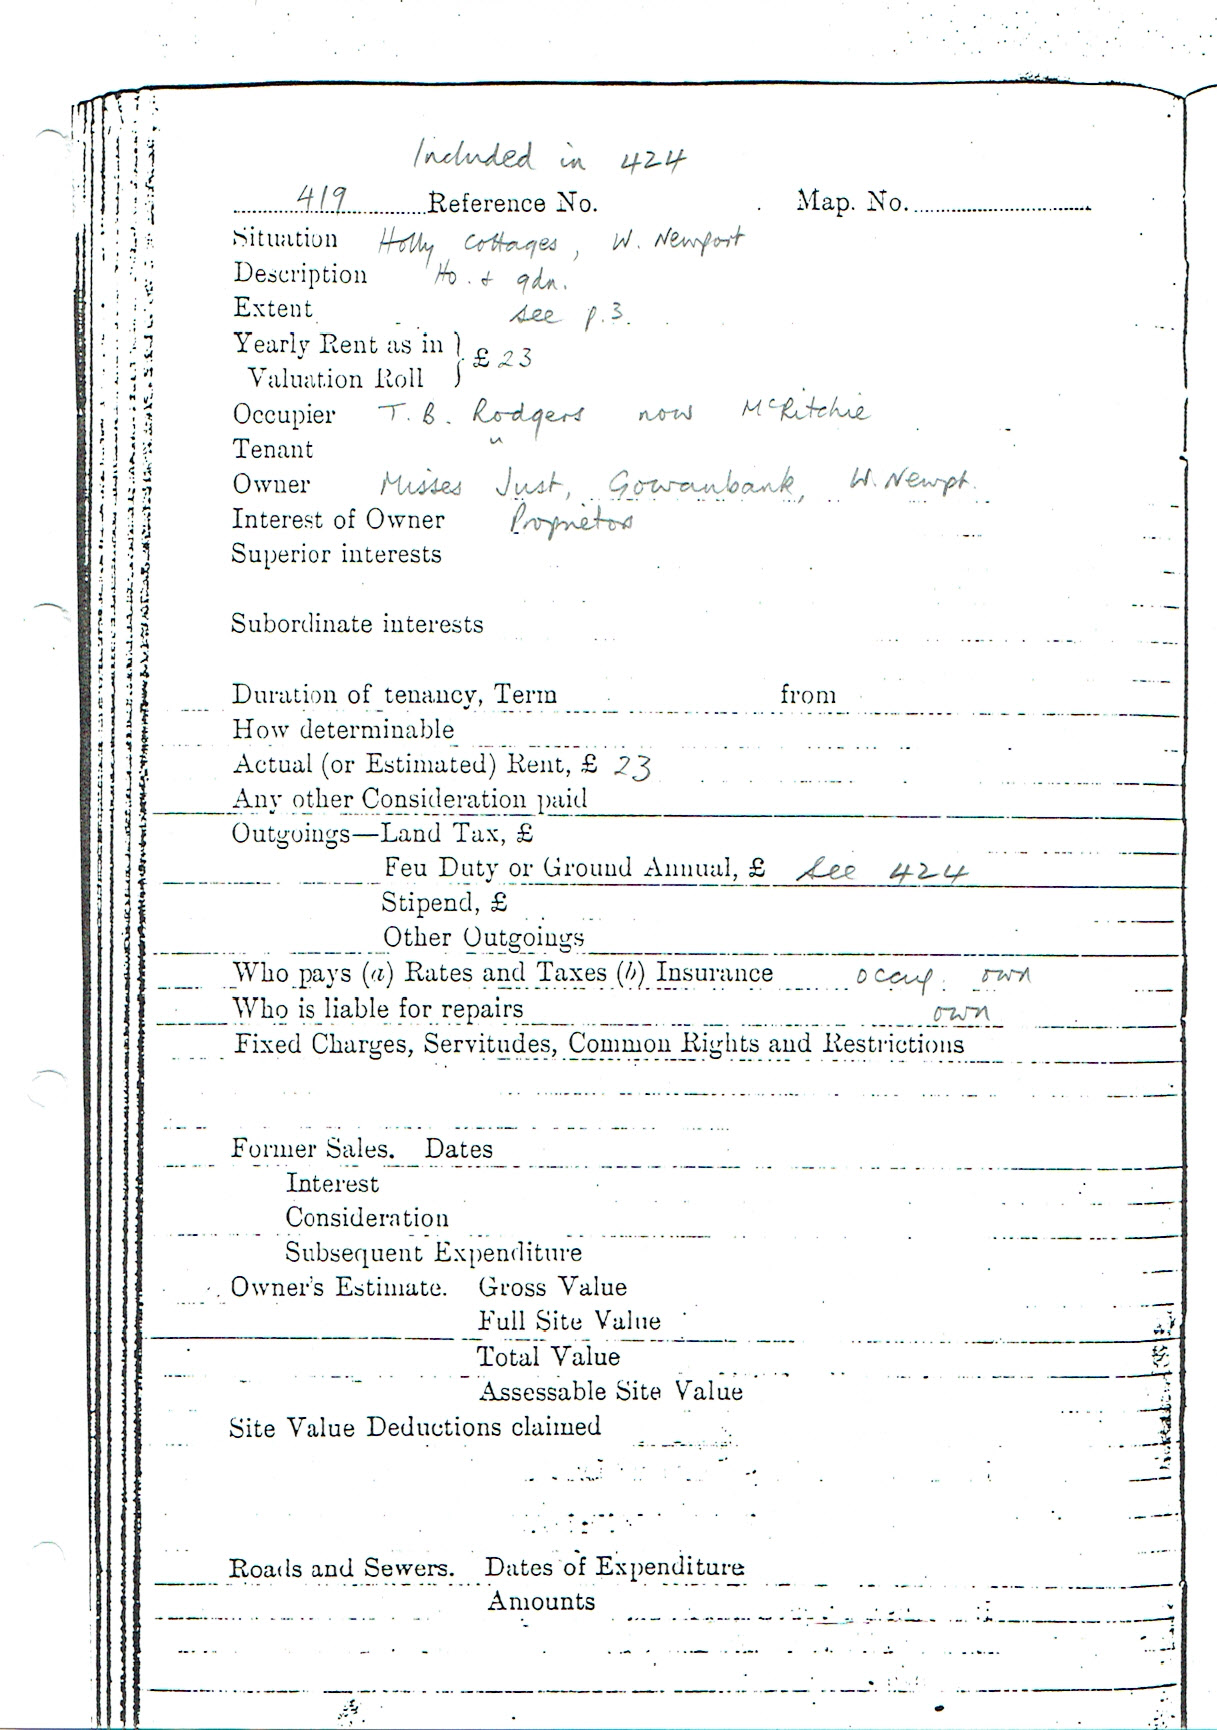 Included in 424
419 Reference No. Map. No.
Situation Holly Cottages, W. Newport
Description Ho. & gdn.
Extent see p.3.
Yearly Rent as in } £ 23
Valuation Roll
Occupier T. B. Rodgers now McRitchie
Tenant "
Owner Misses Just, Gowanbank, W. Newpt.
Interest of Owner Proprietors
Superior interests
Subordinate interests
Duration of tenancy, Term from
How determinable
Actual (or Estimated) Rent, £ 23
Any other Consideration paid
Outgoings—Land Tax, £
Feu Duty or Ground Annual, £ See 424
Stipend, £
Other Outgoings
Who pays (a) Rates and Taxes (b) Insurance occup. own
Who is liable for repairs own
Fixed Charges, Servitudes, Common Rights and Restrictions
Former Sales. Dates
Interest
Consideration
Subsequent Expenditure
Owner's Estimate. Gross Value
Full Site Value
Total Value
Assessable Site Value
Site Value Deductions claimed
Roads and Sewers. Dates of Expenditure
Amounts